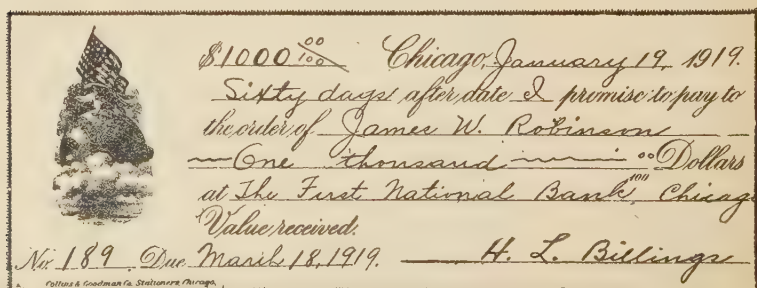 $1000 00/100 Chicago, January 19, 1919.
Sixty days after date I promise to pay to
the order of James W. Robinson
One thousand 00/100 Dollars
at The First National Bank, Chicag
Value received.
No. 189 Due March 18, 1919. H. L. Billings
Collins & Goodman Co. Stationers, Chicago.